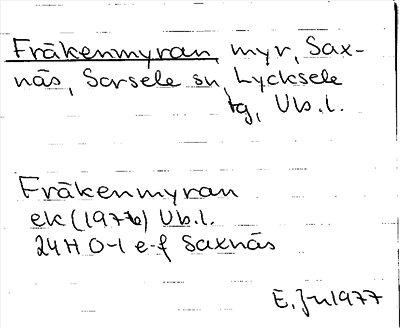 Fräkenmyran, myr, Sax-
näs, Sorsele sn, Lycksele
tg, Vb.l.
Fräkenmyran
ek (1976) Vb.l.
24H 0-1 e-f Saxnäs
E. Jn 1977